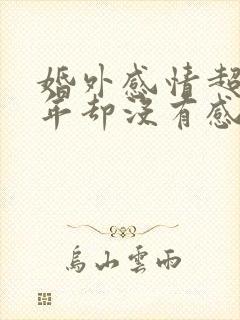 婚外感情超
年却没有感
烏山雲雨